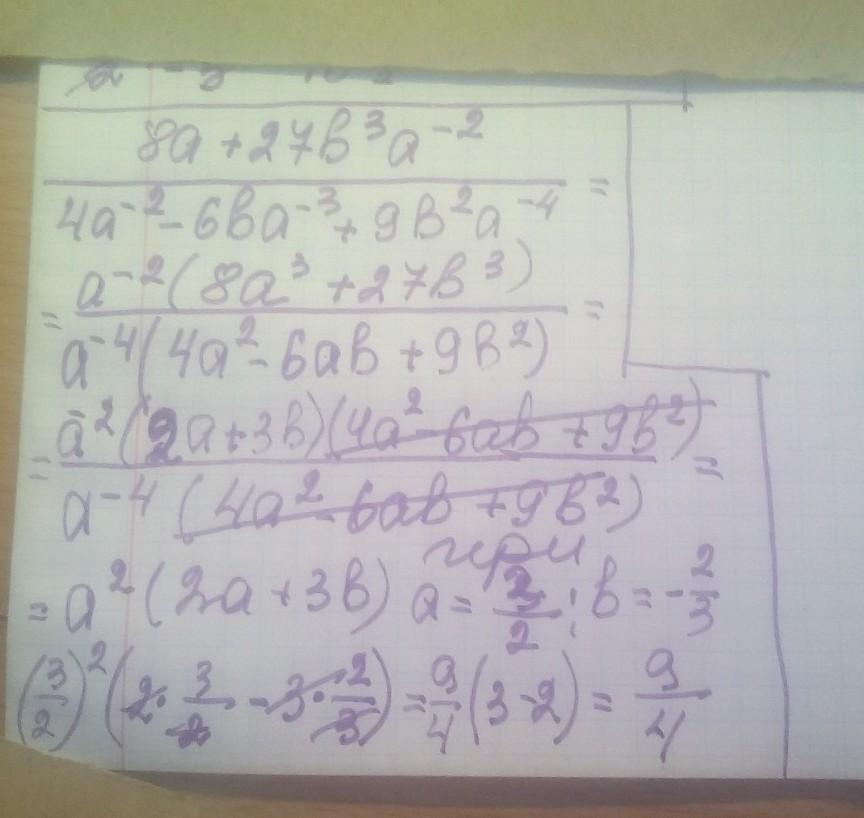 8a + 27b³a⁻²
4a⁻² - 6ba⁻³ + 9b²a⁻⁴ =
= a⁻²(8a³ + 27b³)
a⁻⁴(4a² - 6ab + 9b²) =
= a⁻²(2a + 3b)(4a² - 6ab + 9b²)
a⁻⁴(4a² - 6ab + 9b²) =
при
= a²(2a + 3b) a = 3/2 ; b = -2/3
(3/2)²(2 · 3/2 - 3 · 2/3) = 9/4(3 - 2) = 9/4